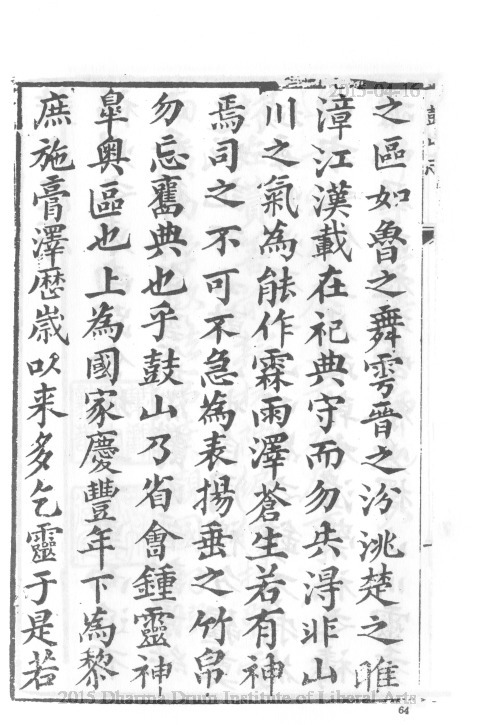 之區如魯之舞雩晉之汾洮楚之睢
漳江漢載在祀典守而勿失得非山
川之氣為能作霖雨澤蒼生若有神
焉司之不可不急為表揚垂之竹帛
勿忘舊典也乎鼓山乃省會鍾靈神
皐奥區也上為國家慶豐年下為黎
庶施膏澤歴歲以来多乞靈于是若
2015-04-16
2015 Dharma Drum Institute of Liberal Arts
64